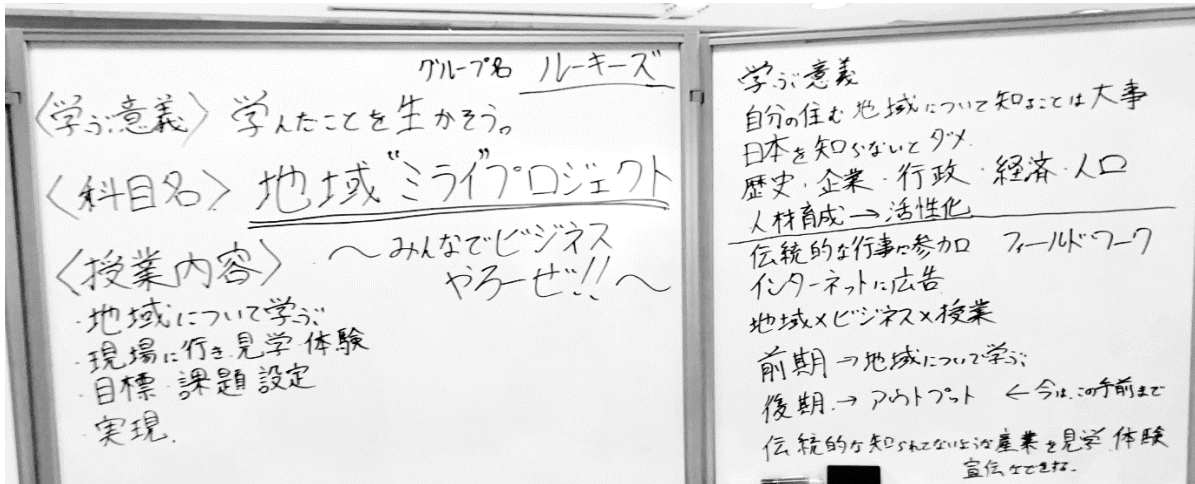 グループ名 ルーキーズ
〈学ぶ意義〉 学んだことを生かそう。
〈科目名〉 地域"ミライ"プロジェクト
〜みんなでビジネス
やろーぜ!!〜
〈授業内容〉
・地域について学ぶ
・現場に行き 見学・体験
・目標・課題 設定
・実現
学ぶ意義
自分の住む地域について知ることは大事
日本を知らないとダメ
歴史・企業・行政・経済・人口
人材育成→活性化
伝統的な行事に参加 フィールド・ワーク
インターネットに広告
地域×ビジネス×授業
前期→地域について学ぶ
後期→アウトプット ←今は、この手前まで
伝統的な知られてないような産業を見学、体験
宣伝